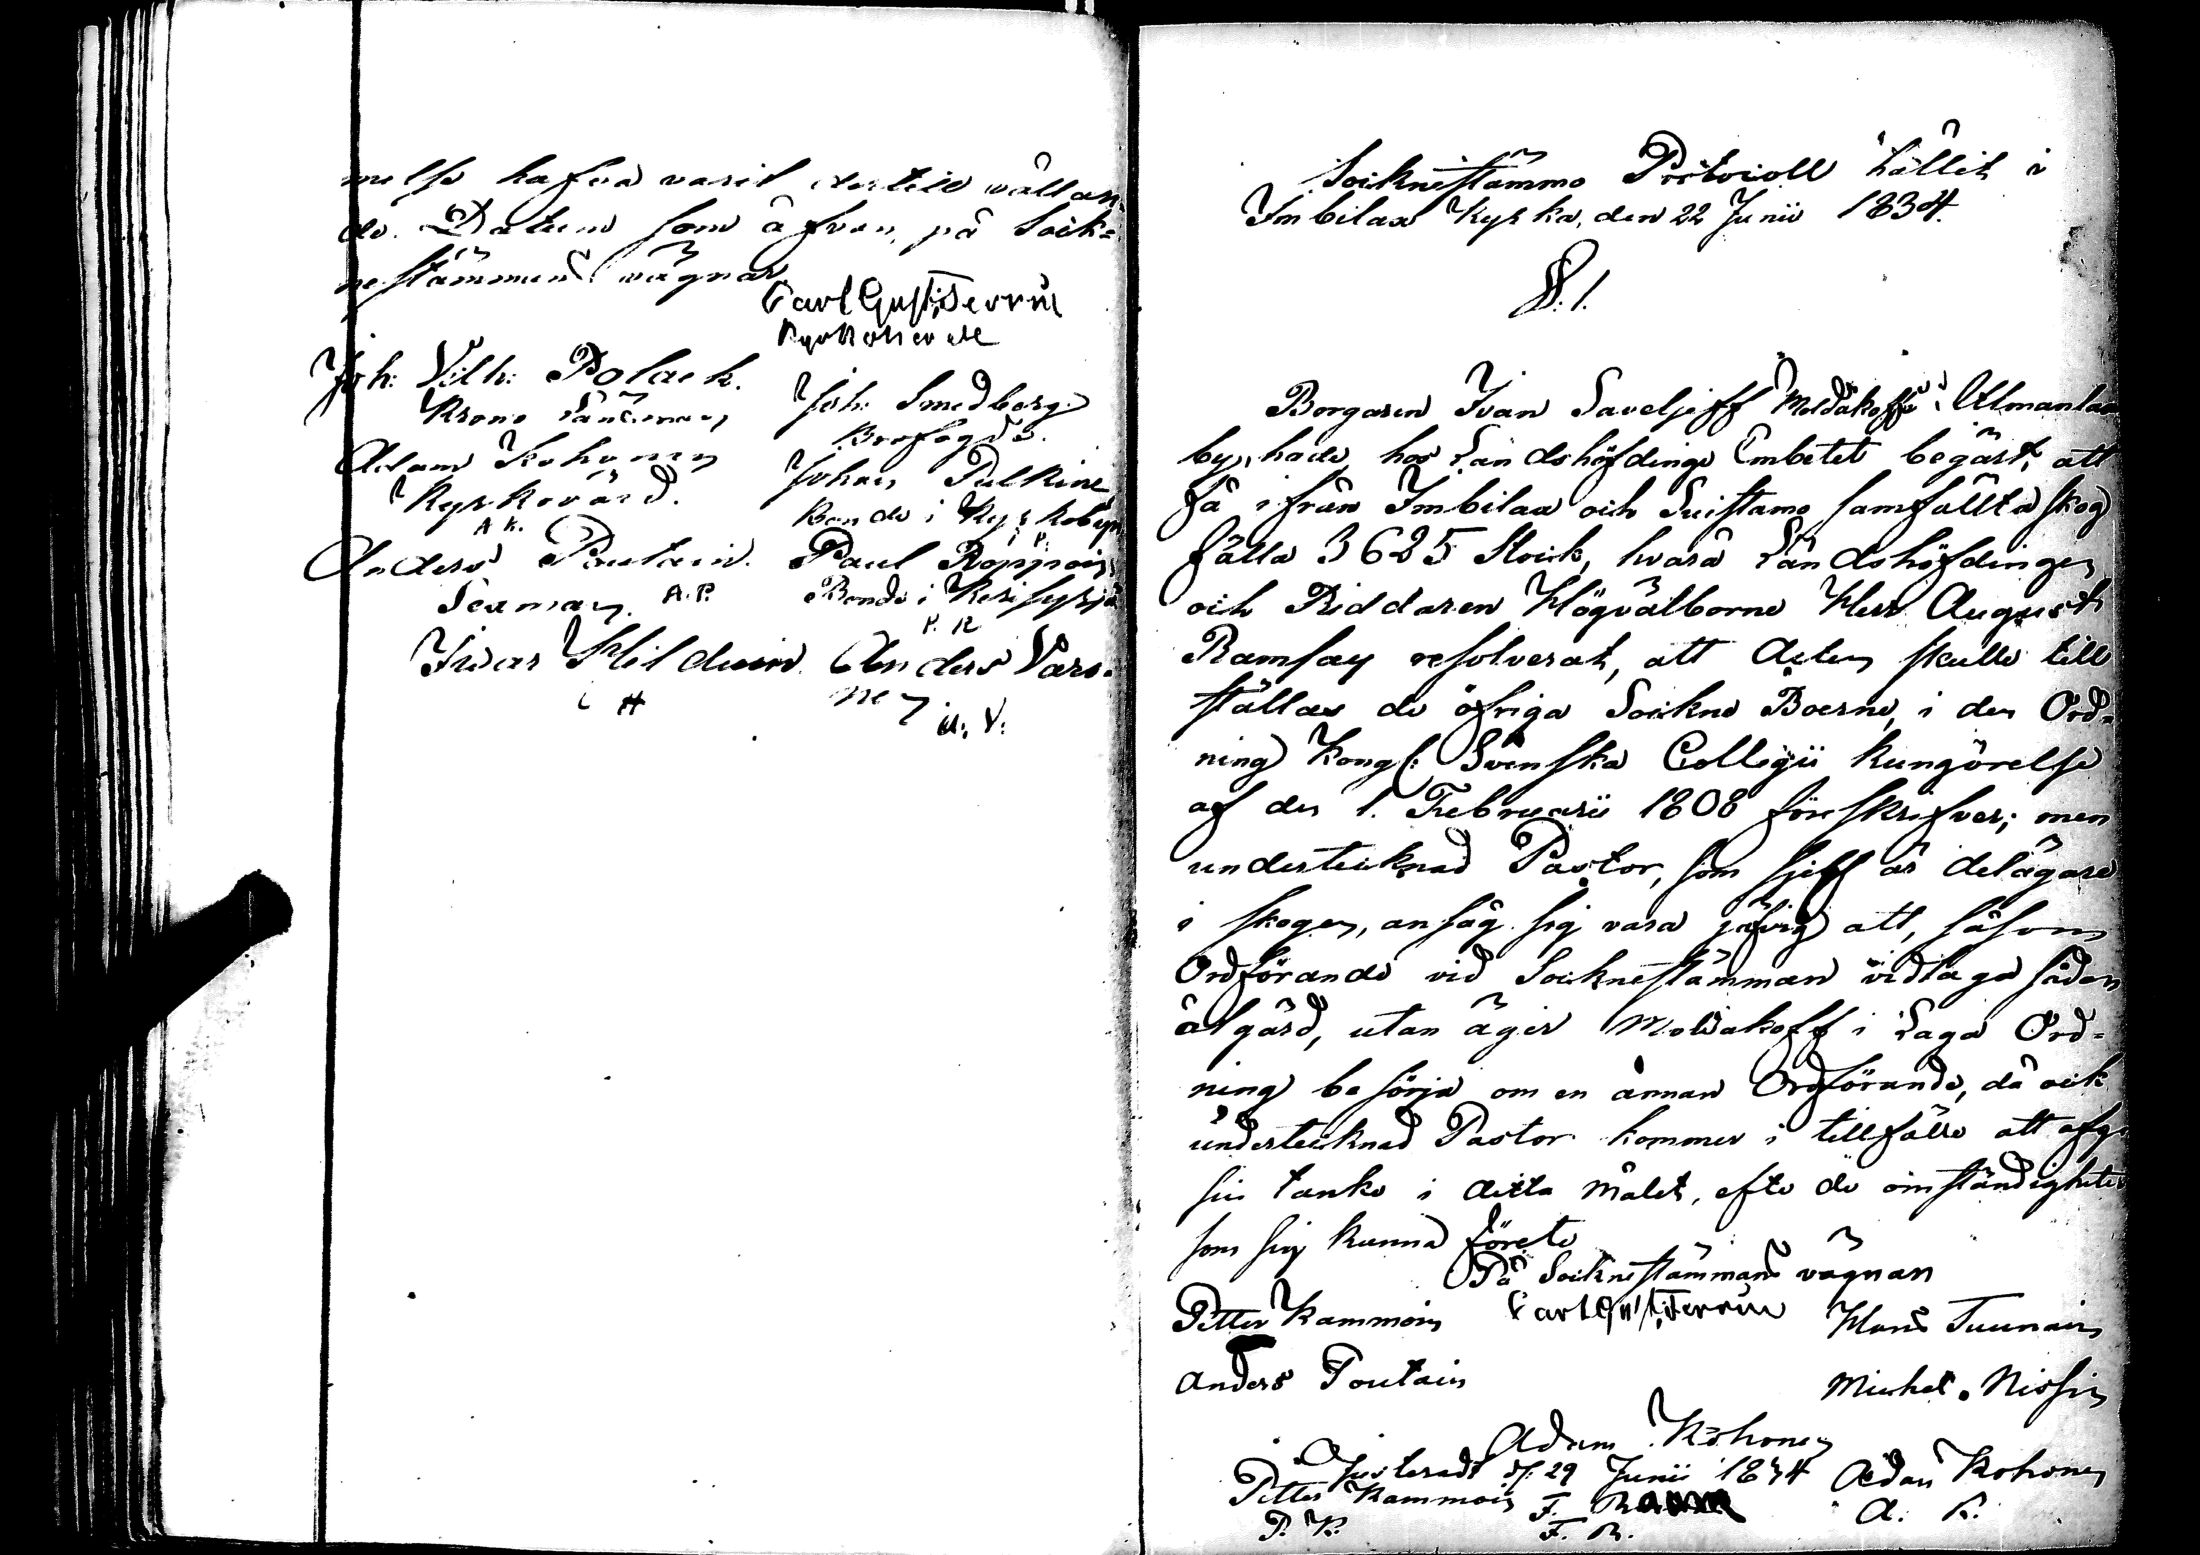 melse hafva varit dertill vållan-
de. Datum som ofvan, på Sock-
nestämmans vägnar
Carl Gust: Ferrin
Kyrkoherde
Joh: Vilh: Polack.
Krono Länsman
Joh: Smedberg
Brofogde.
Adam Kohonen
Kyrkovärd.
A K.
Johan Pulkine
Bonde i Kyrkobyn
P.
Anders Poutain.
Sexman. A. P.
Paul Roppoin
Bonde i Kerisyrjä
P. R
Ivar Hilduin.
I H
Anders Varo-
nen A. V.
Socknestämmo Protocoll hållit i
Imbilax Kyrka, den 22 Junii 1834.
§. 1.
Borgaren Ivan Saveljeff Moldakoff i Utmanlax
by, hade hos Landshöfdinge Embetet begärt, att
få ifrån Imbilax och Suistamo samfällta skog
fälla 3625 Stock, hvarå Landshöfdingen
och Riddaren Högvälborne Herr August
Ramsay resolverat, att delen skulle till
ställas de öfriga Sockne Boerne, i den Ord-
ning Kongl: Svenska Collegii kungörelse
af den 1. Februarii 1808 förskrifver; men
undertecknad Pastor, som sjelf är delägare
i skogen, ansåg sig vara jäfvig att, såsom
Ordförande vid Sockne stämman vidtaga sådan
åtgärd, utan äger Moldakoff i Laga Ord-
ning besörja om en annan Ordförande, då ock
undertecknad Pastor kommer i tillfälle att afge
sin tanke i detta målet, efte de omständigheter
som sig kunna förete
På Sockne stämmans vägnar
Carl Gust: Ferrin
Petter Kammoin Hans Tuunain
Anders Poutain Michel Nissin
Adam Kohonen
Justeradt d: 29 Junii 1834 Adam Kohonen
Petter Kammoin F. A. K.
P. K. F. R.